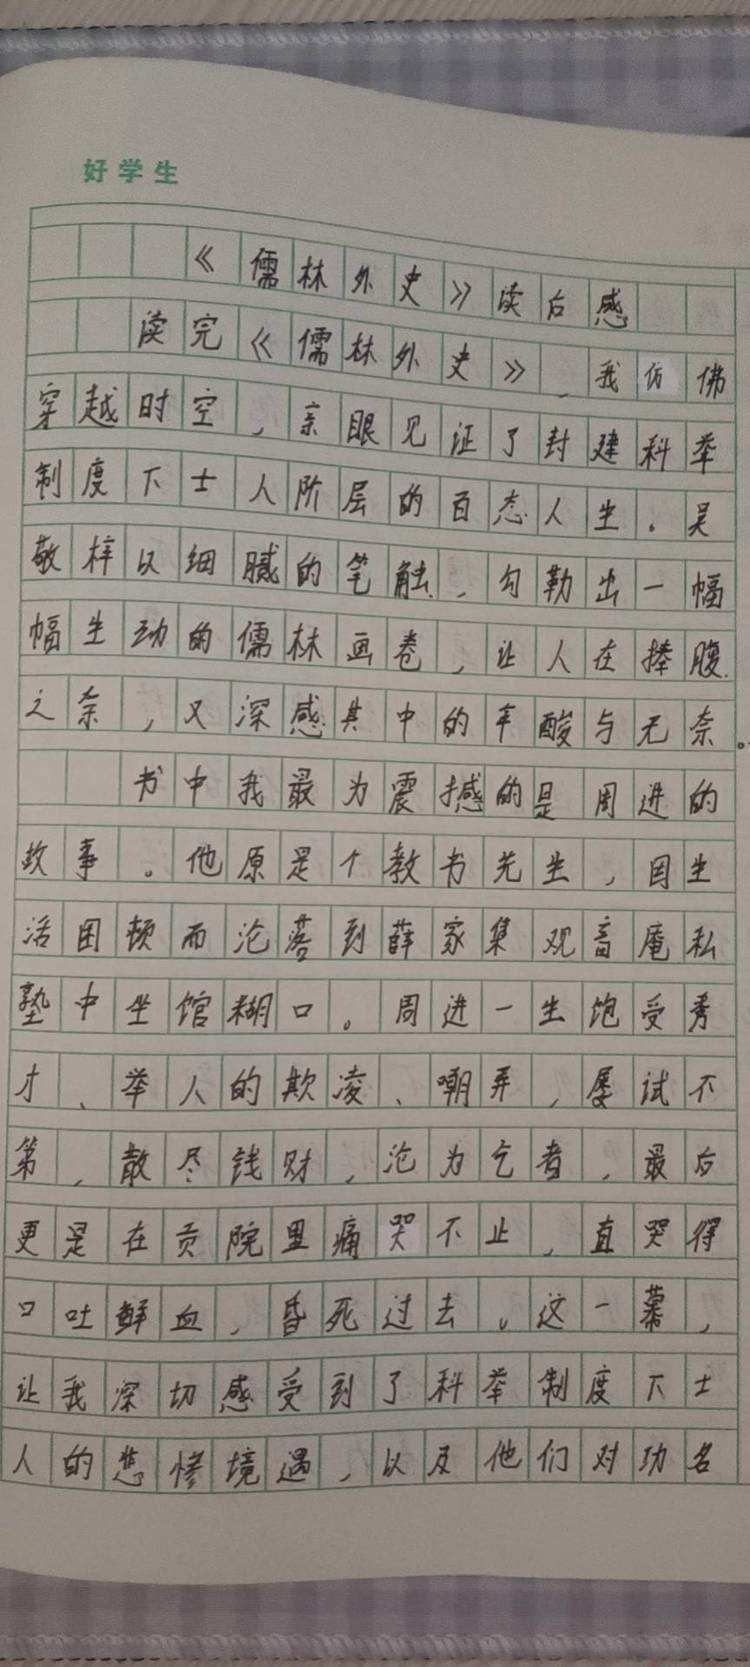 好学生
《儒林外史》读后感
读完《儒林外史》,我仿佛
穿越时空,亲眼见证了封建科举
制度下士人阶层的百态人生。吴
敬梓以细腻的笔触,勾勒出一幅
幅生动的儒林画卷,让人在捧腹
之余,又深感其中的辛酸与无奈。
书中我最为震撼的是周进的
故事。他原是个教书先生,因生
活困顿而沦落到薛家集观音庵私
塾中坐馆糊口。周进一生饱受秀
才、举人的欺凌、嘲弄,屡试不
第,散尽钱财,沦为乞者,最后
更是在贡院里痛哭不止,直哭得
口吐鲜血,昏死过去。这一幕,
让我深切感受到了科举制度下士
人的悲惨境遇,以及他们对功名